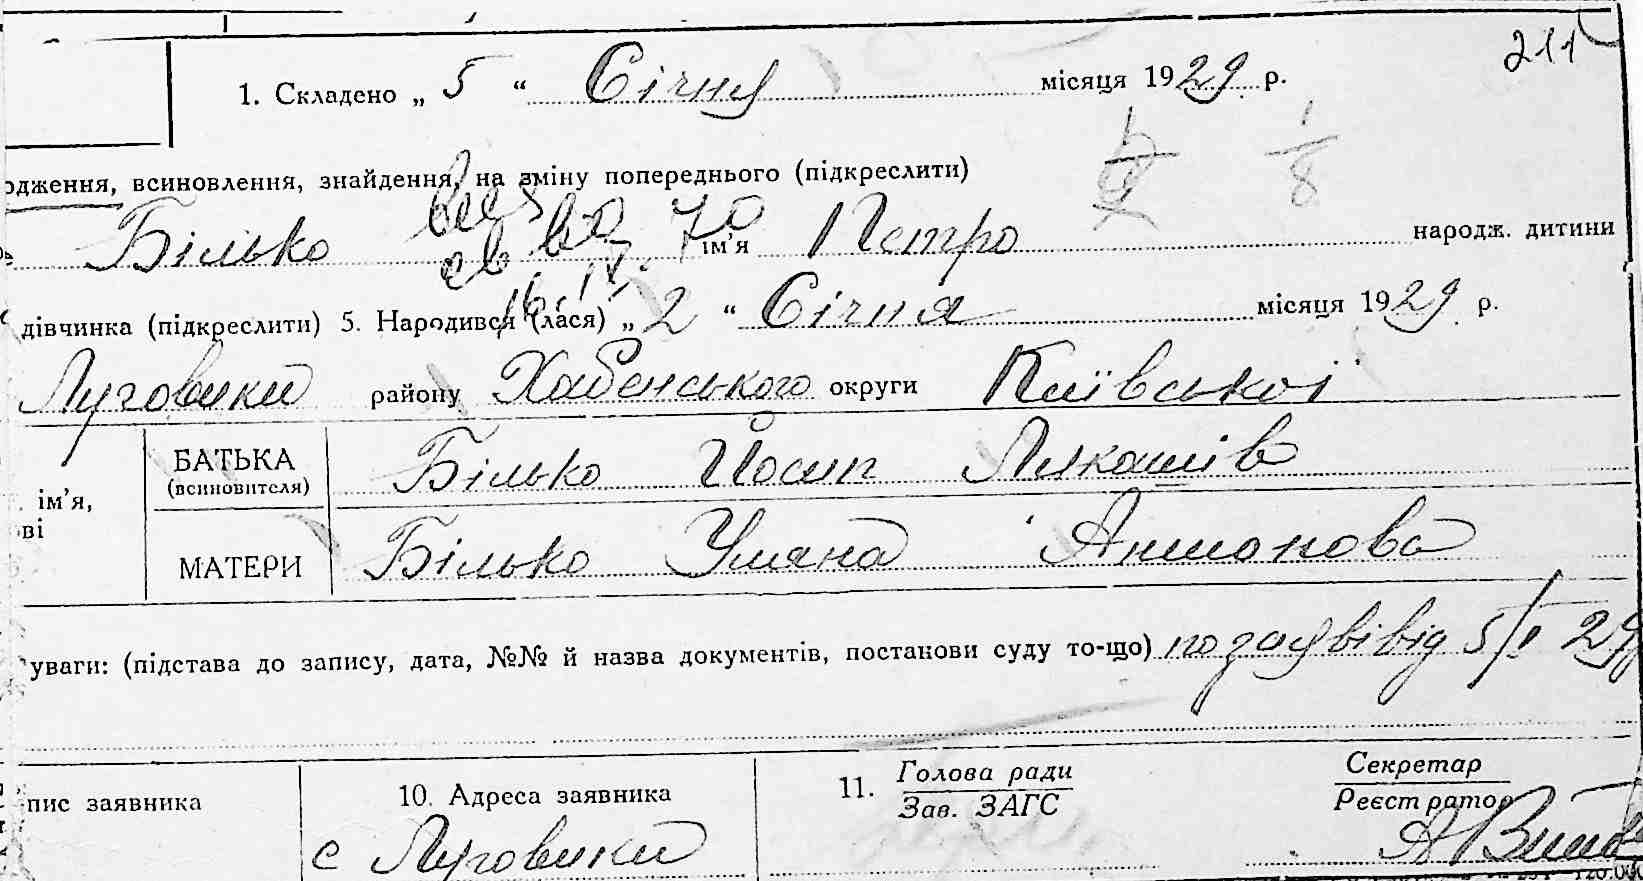 211
1. Складено „ 5 “ Січня місяця 1929 р.
одження, всиновлення, знайдення, на зміну попереднього (підкреслити)
Білько ім’я Петро народж. дитини
дівчинка (підкреслити) 5. Народився (лася) „ 2 “ Січня місяця 1929 р.
Луговики району Хабенського округи Київської
БАТЬКА Білько Йосип
(всиновителя)
ім’я,
ві
МАТЕРИ Білько Уляна Антонова
уваги: (підстава до запису, дата, №№ й назва документів, постанови суду то-що) по заяві від 5/I 29
пис заявника 10. Адреса заявника 11. Голова ради Секретар
Зав. ЗАГС Реєстратор
с Луговики